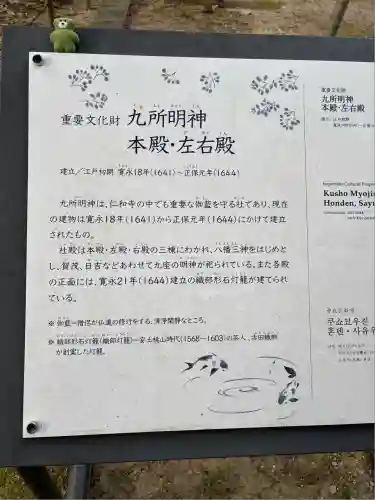 重要文化財 九所明神
本殿・左右殿
建立／江戸初期 寛永18年(1641)～正保元年(1644)
九所明神は、仁和寺の中でも重要な伽藍を守る社であり、現在
の建物は寛永18年(1641)から正保元年(1644)にかけて建立
されたもの。
社殿は本殿・左殿・右殿の三棟にわかれ、八幡三神をはじめと
し、賀茂、日吉などあわせて九座の明神が祀られている。また各殿
の正面には、寛永21年(1644)建立の織部形石灯籠が建てられ
ている。
※ 伽藍＝僧侶が仏道の修行をする、清浄閑静なところ。
※ 織部形石灯籠(織部灯籠)＝安土桃山時代(1568～1603)の茶人、古田織部
が創案した灯籠。
重要文化財
九所明神
本殿・左右殿
Important Cultural Proper
Kusho Myojin
Honden, Sayu
쿠쇼묘우진
혼덴・사유우